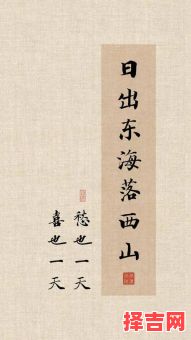 日出东海落西山
愁也一天
喜也一天
择吉网
zejiwang.com